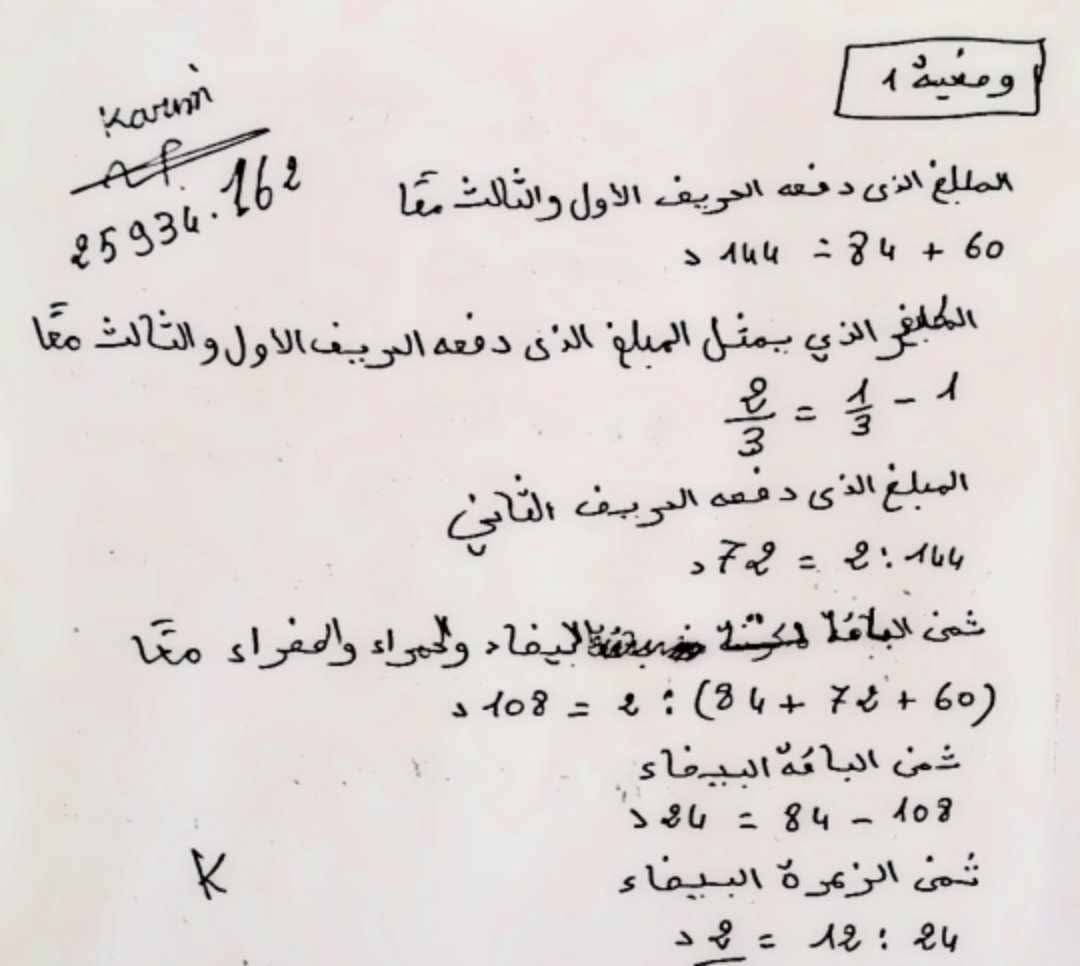 وضعية 1
Karim
25934.162
المبلغ الذى دفعه الحريف الاول والثالث معًا
60 + 84 = 144 د
الذي يمثل المبلغ الذى دفعه الحريف الاول والثالث معًا
1 - 1/3 = 2/3
المبلغ الذى دفعه الحريف الثاني
144 : 2 = 72 د
ثمن الباقة البيضاء والحمراء والصفراء معًا
(60 + 72 + 84) : 2 = 108 د
ثمن الباقة البيضاء
108 - 84 = 24 د
ثمن الزهرة البيضاء
24 : 12 = 2 د
K